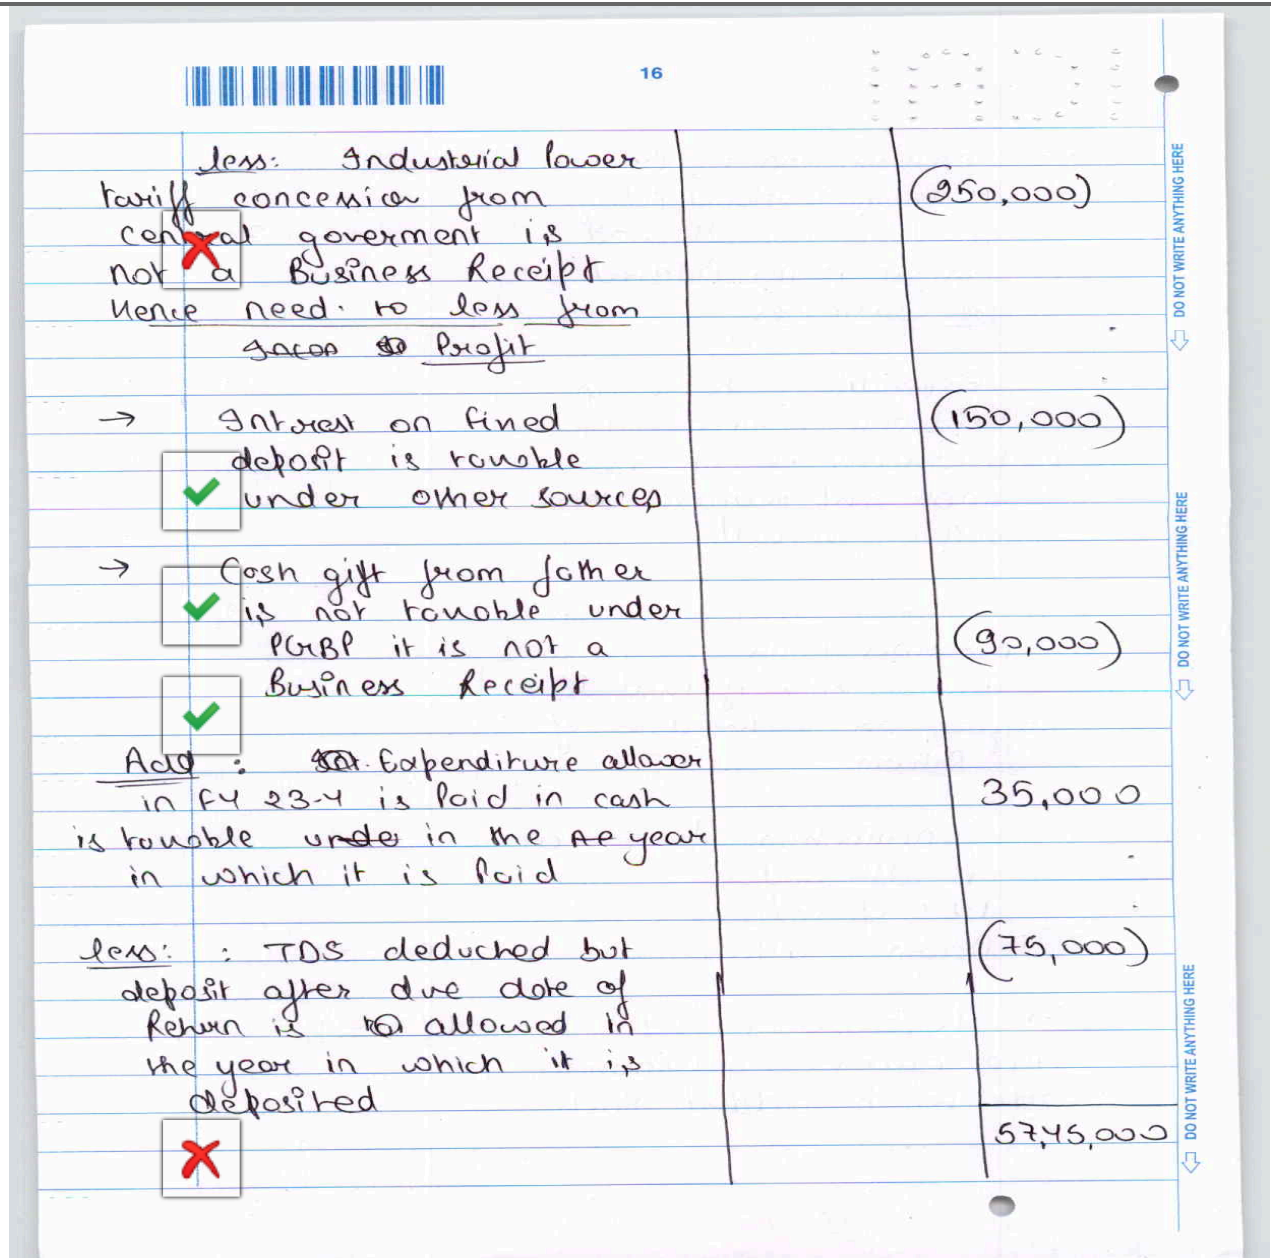 16
less: Industrial Power
tariff concession from (250,000)
central goverment is
not a Business Receipt
Hence need to less from
Profit
→ Interest on fixed (150,000)
deposit is taxable
under other sources
→ Cash gift from father
is not taxable under
PGBP it is not a (90,000)
Business Receipt
Add : Expenditure allower
in FY 23-4 is Paid in cash 35,000
is taxable unde in the year
in which it is Paid
less: : TDS deducted but (75,000)
deposit after due date of
Return is allowed in
the year in which it is
deposited
57,45,000
DO NOT WRITE ANYTHING HERE
DO NOT WRITE ANYTHING HERE
DO NOT WRITE ANYTHING HERE